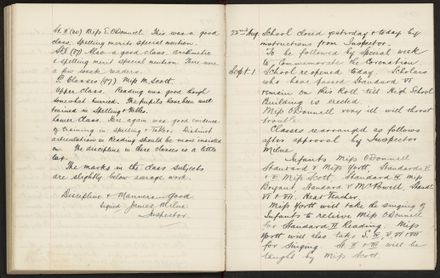 St. II (20) Miss E. O'Donnell. This was a good
class. Spelling merits special mention.
Std. I (17) Also a good class. Arithmetic
& spelling merit special mention. There were
a few weak readers.
P. Classes (47) Miss M. Scott.
Upper Class. Reading was good though
somewhat hurried. The pupils have been well
trained in Spelling & Tables.
Lower Class. Here again was good evidence
of training in Spelling & Tables. Distinct
articulation in Reading should be more insisted
on. The discipline in these classes is a little
lax.
The marks in the class subjects
are slightly below average work.
Discipline & Manners Good
Signed James Milne
Inspector.
22nd Aug. School closed yesterday & today by
instructions from Inspector.
To be followed by special week
to commemorate the Coronation
Sept. 1 School reopened today. Scholars
who have passed Standard VI
remain on this Roll till High School
Building is erected.
Miss O'Donnell very ill with throat
trouble.
Classes rearranged as follows
after approval by Inspector
Milne
Infants Miss O'Donnell
Standard I Miss North, Standards II
& III Miss Scott, Standard IV Miss
Bryant, Standard V Mr Powell, Stand.
VI & VII. Head Teacher.
Miss North will take the singing of
Infants to relieve Miss O'Donnell
for Standard II Reading. Miss
North will also take S. IV, V, VI, VII
for Singing. St. II & III will be
taught by Miss Scott